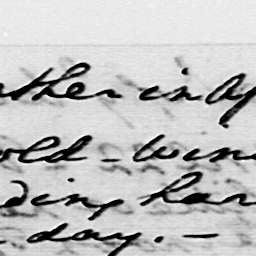 ather in Ap
old - Win
ding har
day. -